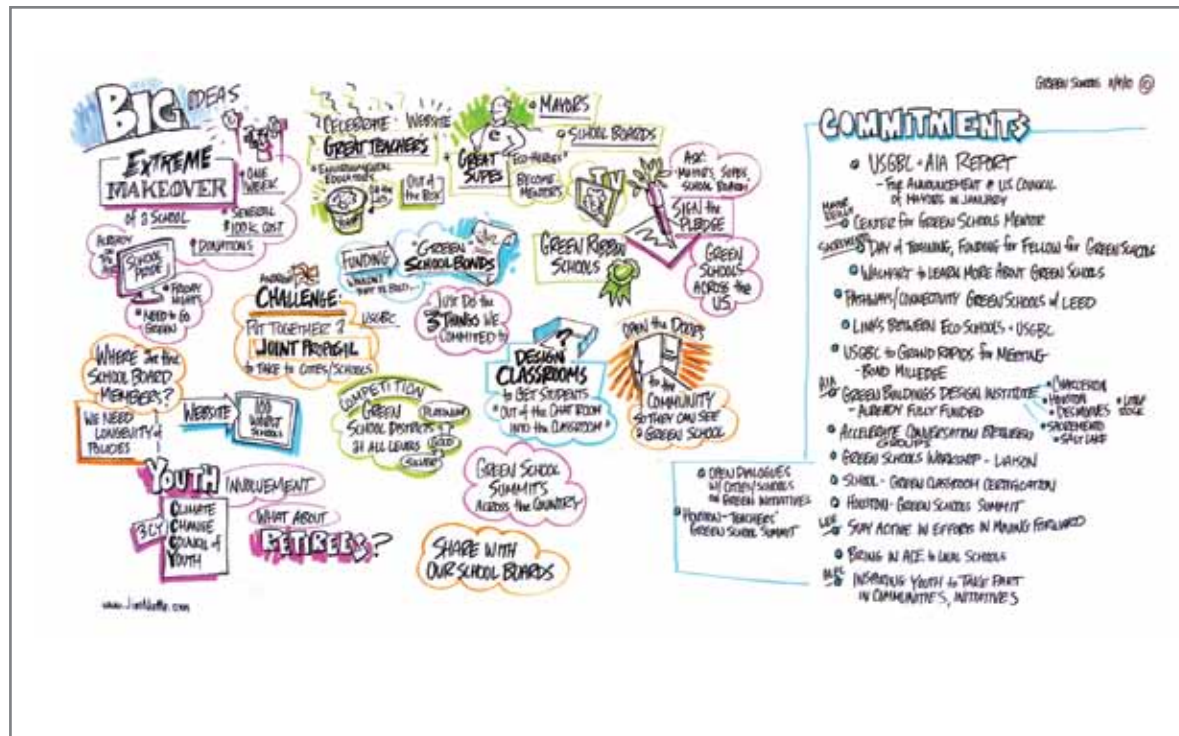 BIG IDEAS
EXTREME
MAKEOVER
of a SCHOOL
ONE
WEEK
GENERAL
$100K COST
DONATIONS
ALREADY
SCHOOL
PRIDE
FRIDAY
NIGHTS
NEED to GO
GREEN
CELEBRATE WEBSITE
GREAT TEACHERS
ENVIRONMENTAL
EDUCATORS
OUT of
the BOX
GREAT
SUPES
"ECO-HEROES"
BECOME
MENTORS
MAYORS
SCHOOL BOARDS
TV
ASK:
MAYORS, SUPES,
SCHOOL BOARDS
SIGN the
PLEDGE
GREEN RIBBON
SCHOOLS
GREEN
SCHOOLS
ACROSS the
U.S.
FUNDING
"GREEN"
SCHOOL BONDS
CHALLENGE:
USGBC
PUT TOGETHER a
JOINT PROPOSAL
to TAKE to CITIES/SCHOOLS
JUST DO the
3 THINGS WE
COMMITED to
DESIGN
CLASSROOMS
to GET STUDENTS
OUT of the CHAT ROOM
INTO the CLASSROOM
OPEN the DOORS
to the
COMMUNITY
SO THEY CAN SEE
a GREEN SCHOOL
WHERE are the
SCHOOL BOARD
MEMBERS?
WE NEED
LONGEVITY of
POLICIES
WEBSITE
100
WORST
SCHOOLS
COMPETITION
GREEN
SCHOOL DISTRICTS
at ALL LEVELS
PLATINUM
GOLD
SILVER
YOUTH INVOLVEMENT
3CY
CLIMATE
CHANGE
COUNCIL of
YOUTH
WHAT ABOUT
RETIREES?
GREEN SCHOOL
SUMMITS
ACROSS the COUNTRY
SHARE WITH
OUR SCHOOL BOARDS
GREEN SCHOOLS
COMMITMENTS
USGBC + AIA REPORT
- FOR ANNOUNCEMENT @ US COUNCIL
of MAYORS IN JANUARY
CENTER for GREEN SCHOOLS MENTOR
DAY of TRAINING, FUNDING for FELLOW for GREEN SCHOOLS
WALMART to LEARN MORE ABOUT GREEN SCHOOLS
PATHWAY/CONNECTIVITY GREEN SCHOOLS w/ LEED
LINKS BETWEEN ECO-SCHOOLS + USGBC
USGBC to GRAND RAPIDS for MEETING
- BOND MILLEDGE
AIA
GREEN BUILDINGS DESIGN INSTITUTE
- ALREADY FULLY FUNDED
CHARLESTON
HOUSTON
DES MOINES
LITTLE
ROCK
SACREMENTO
SALT LAKE
ACCELERATE CONVERSATION BETWEEN
GROUPS
GREEN SCHOOLS WORKSHOP - LIAISON
SCHOOL - GREEN CLASSROOM CERTIFICATION
HOUSTON - GREEN SCHOOLS SUMMIT
STAY ACTIVE IN EFFORTS IN MOVING FORWARD
BRING IN ACE to LOCAL SCHOOLS
INSPIRING YOUTH to TAKE PART
IN COMMUNITIES, INITIATIVES
OPEN DIALOGUES
w/ CITIES/SCHOOLS
on GREEN INITIATIVES
HOUSTON - TEACHERS'
GREEN SCHOOL SUMMIT